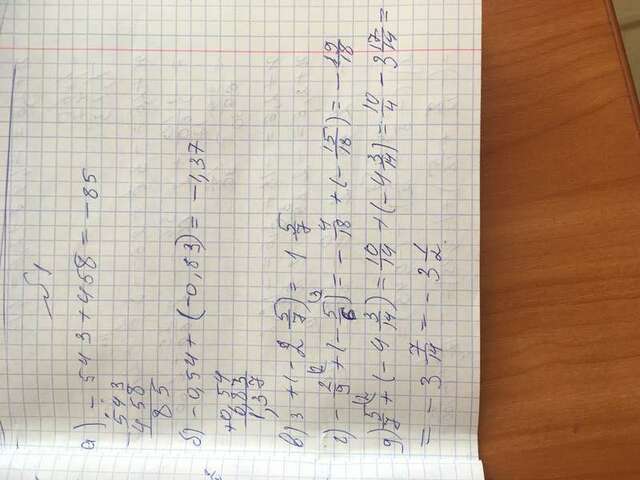 №1
а) - 543 + 458 = - 85
- 543
458
85
б) - 0,54 + (-0,83) = -1,37
+ 0,54
0,83
1,37
в) 3 + (- 2 5/7) = 1 5/7
г) - 2/9 (2 + (- 5/6) (3 = - 4/18 + (- 15/18) = - 19/18
д) 5/7 (2 + (- 4 3/14) = 10/14 + (- 4 3/14) = 10/4 - 3 17/14 =
= - 3 7/14 = - 3 1/2